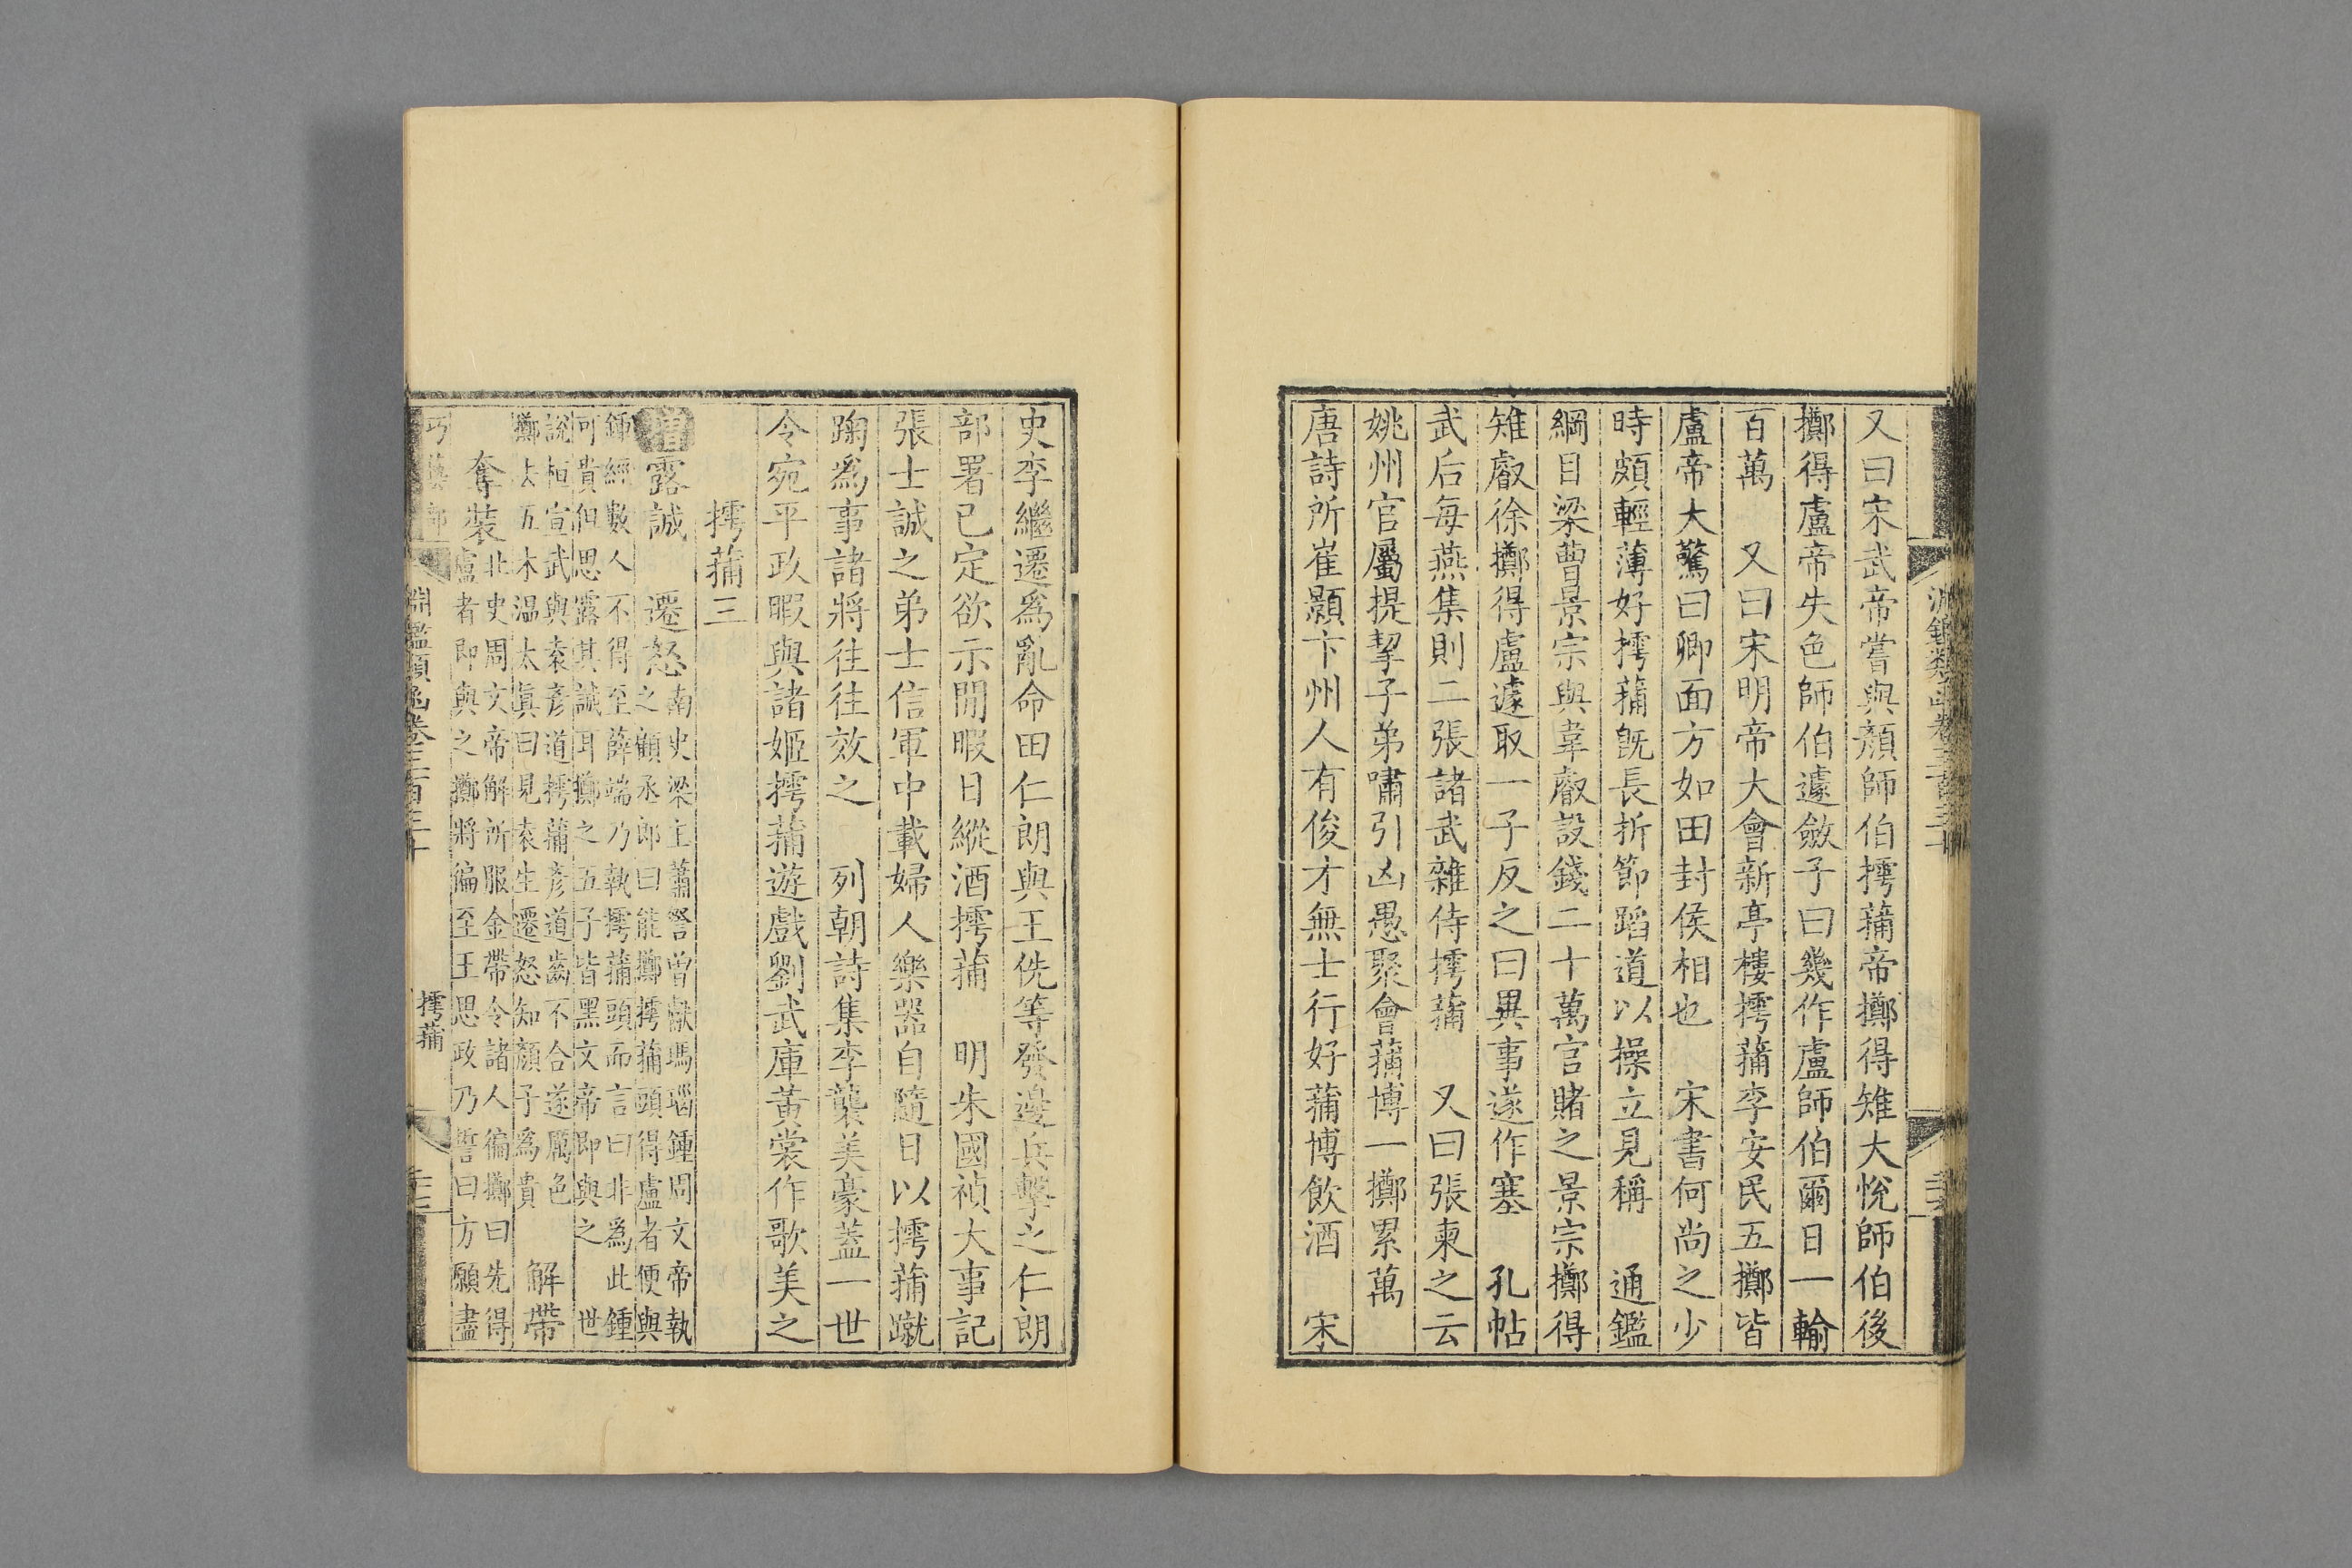 又曰宋武帝嘗與顏師伯摴蒱帝擲得雉大悅師伯後
擲得盧帝失色師伯遽斂子曰幾作盧師伯爾日一輸
百萬　又曰宋明帝大會新亭樓摴蒱李安民五擲皆
盧帝大驚曰卿面方如田封侯相也　宋書何尚之少
時頗輕薄好摴蒱旣長折節蹈道以操立見稱　通鑑
綱目梁曹景宗與韋叡設錢二十萬官賭之景宗擲得
雉叡徐擲得盧遽取一子反之曰異事遂作塞　孔帖
武后每燕集則二張諸武雜侍摴蒱　又曰張柬之云
姚州官屬提挈子弟嘯引凶愚聚會蒱博一擲累萬
唐詩所崔顥卞州人有俊才無士行好蒱博飲酒　宋
史李繼遷爲亂命田仁朗與王侁等發邊兵擊之仁朗
部署已定欲示閒暇日縱酒摴蒱　明朱國禎大事記
張士誠之弟士信軍中載婦人樂器自隨日以摴蒱蹴
踘爲事諸將往往效之　列朝詩集李襲美豪蓋一世
令宛平政暇與諸姬摴蒱遊戲劉武庫黃裳作歌美之
摴蒱三
增露誠　遷怒南史梁主蕭詧曾獻瑪瑙鍾周文帝執
之顧丞郎曰能擲摴蒱頭得盧者便與
鍾經數人不得至薛端乃執摴蒱頭而言曰非爲此鍾
可貴但思露其誠耳擲之五子皆黑文帝即與之　世
說桓宣武與袁彥道摴蒱彥道齒不合遂厲色
擲去五木溫太眞曰見袁生遷怒知顏子爲貴　解帶
奪裝北史周文帝解所服金帶令諸人徧擲曰先得
盧者即與之擲將徧至王思政乃誓曰方願盡
巧藝部　淵鑑類函卷三百三十　摴蒱